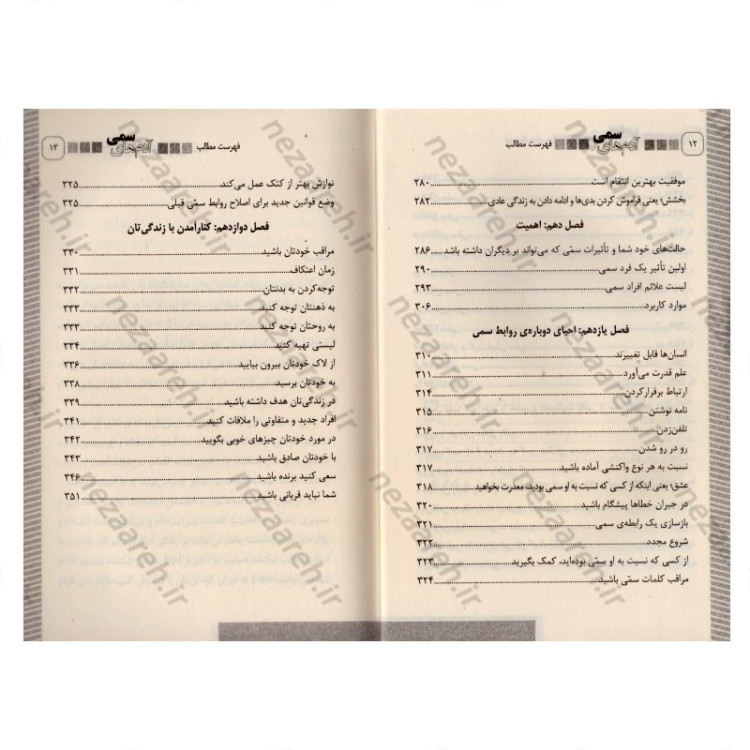 ۱۲
آدم‌های سمی
فهرست مطالب
موفقیت بهترین انتقام است ۲۸۰
بخشش؛ یعنی فراموش کردن بدی‌ها و ادامه دادن به زندگی عادی ۲۸۲
فصل دهم: اهمیت
حالت‌های خود شما و تأثیرات سمّی که می‌تواند بر دیگران داشته باشد ۲۸۶
اولین تأثیر یک فرد سمی ۲۹۰
لیست علائم افراد سمی ۲۹۳
موارد کاربرد ۳۰۶
فصل یازدهم: احیای دوباره‌ی روابط سمی
انسان‌ها قابل تغییرند ۳۱۰
علم قدرت می‌آورد ۳۱۱
ارتباط برقرار کردن ۳۱۴
نامه نوشتن ۳۱۵
تلفن‌زدن ۳۱۶
رو در رو شدن ۳۱۷
نسبت به هر نوع واکنشی آماده باشید ۳۱۷
عشق؛ یعنی اینکه از کسی که نسبت به او سمی بودید، معذرت بخواهید
در جبران خطاها پیشگام باشید ۳۲۰
بازسازی یک رابطه‌ی سمی ۳۲۱
شروع مجدد ۳۲۲
از کسی که نسبت به او سمّی بوده‌اید، کمک بگیرید ۳۲۳
مراقب کلمات سمّی باشید ۳۲۴
فهرست مطالب
آدم‌های سمی
۱۳
نوازش بهتر از کتک عمل می‌کند ۳۲۵
وضع قوانین جدید برای اصلاح روابط سمّی قبلی ۳۲۵
فصل دوازدهم: کنارآمدن با زندگی‌تان
مراقب خودتان باشید ۳۳۰
زمان اعتکاف ۳۳۱
توجه‌کردن به بدنتان ۳۳۲
به ذهنتان توجه کنید ۳۳۳
به روحتان توجه کنید ۳۳۳
لیستی تهیه کنید ۳۳۴
از لاک خودتان بیرون بیایید ۳۳۶
به خودتان برسید ۳۳۸
در زندگی‌تان هدف داشته باشید ۳۳۹
افراد جدید و متفاوتی را ملاقات کنید ۳۴۱
در مورد خودتان چیزهای خوبی بگویید ۳۴۲
با خودتان صادق باشید ۳۴۳
سعی کنید برنده باشید ۳۴۶
شما نباید قربانی باشید ۳۵۱
nezaareh.ir